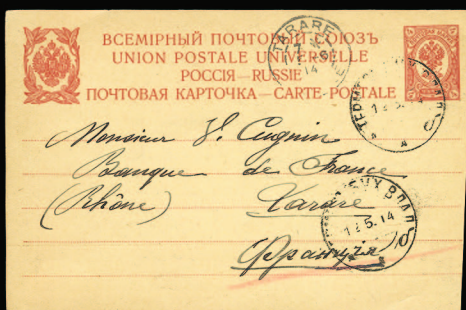 ВСЕМІРНЫЙ ПОЧТОВЫЙ СОЮЗЪ
UNION POSTALE UNIVERSELLE
РОССІЯ—RUSSIE
ПОЧТОВАЯ КАРТОЧКА—CARTE-POSTALE
TARARE
14
12.5.14
Monsieur V. Cugnin
Banque de France
(Rhône) Tarare
12.5.14
Франція